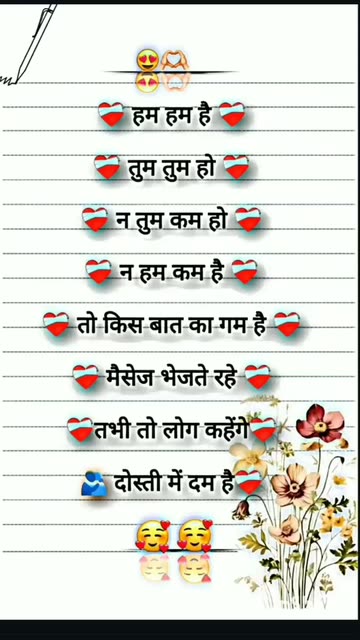 हम हम है
तुम तुम हो
न तुम कम हो
न हम कम है
तो किस बात का गम है
मैसेज भेजते रहे
तभी तो लोग कहेंगे
दोस्ती में दम है